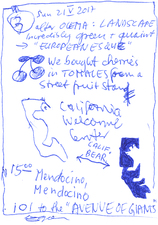 SUN 21 V 2017
after OLEMA: LANDSCAPE
incredibly green + quaint
→ "EUROPEANESQUE"
We bought cherries
in TOMALES from a
street fruit stand
California
Welcome
Center
CALIF.
BEAR
15:00
Mendocino,
Mendocino
101 to the "AVENUE OF GIANTS"